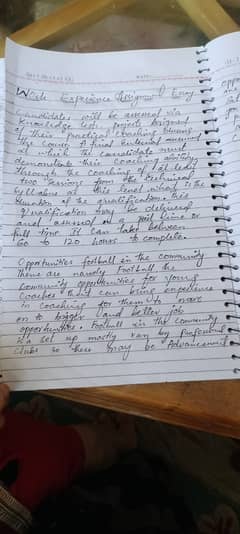 Work Experience Assignment Essay
Candidates will be assessed via
knowledge tests, projects designed
of their practical coaching during
the course. A final external assessment
at which the candidate must
demonstrate their coaching ability
through the coaching of at least
two sessions from the technical
syllabus at this level what is the
duration of the qualification. This
qualification may be delivered
and assessed at a part time or
full time. It can take between
60 to 120 hours to complete.
Opportunities football in the community
There are namely Football the
community opportunities for young
coaches that can bring experience
in coaching for them to move
on to bigger and better job
opportunities. Football in the community
is a set up mostly ran by professional
clubs so there may be Advancement